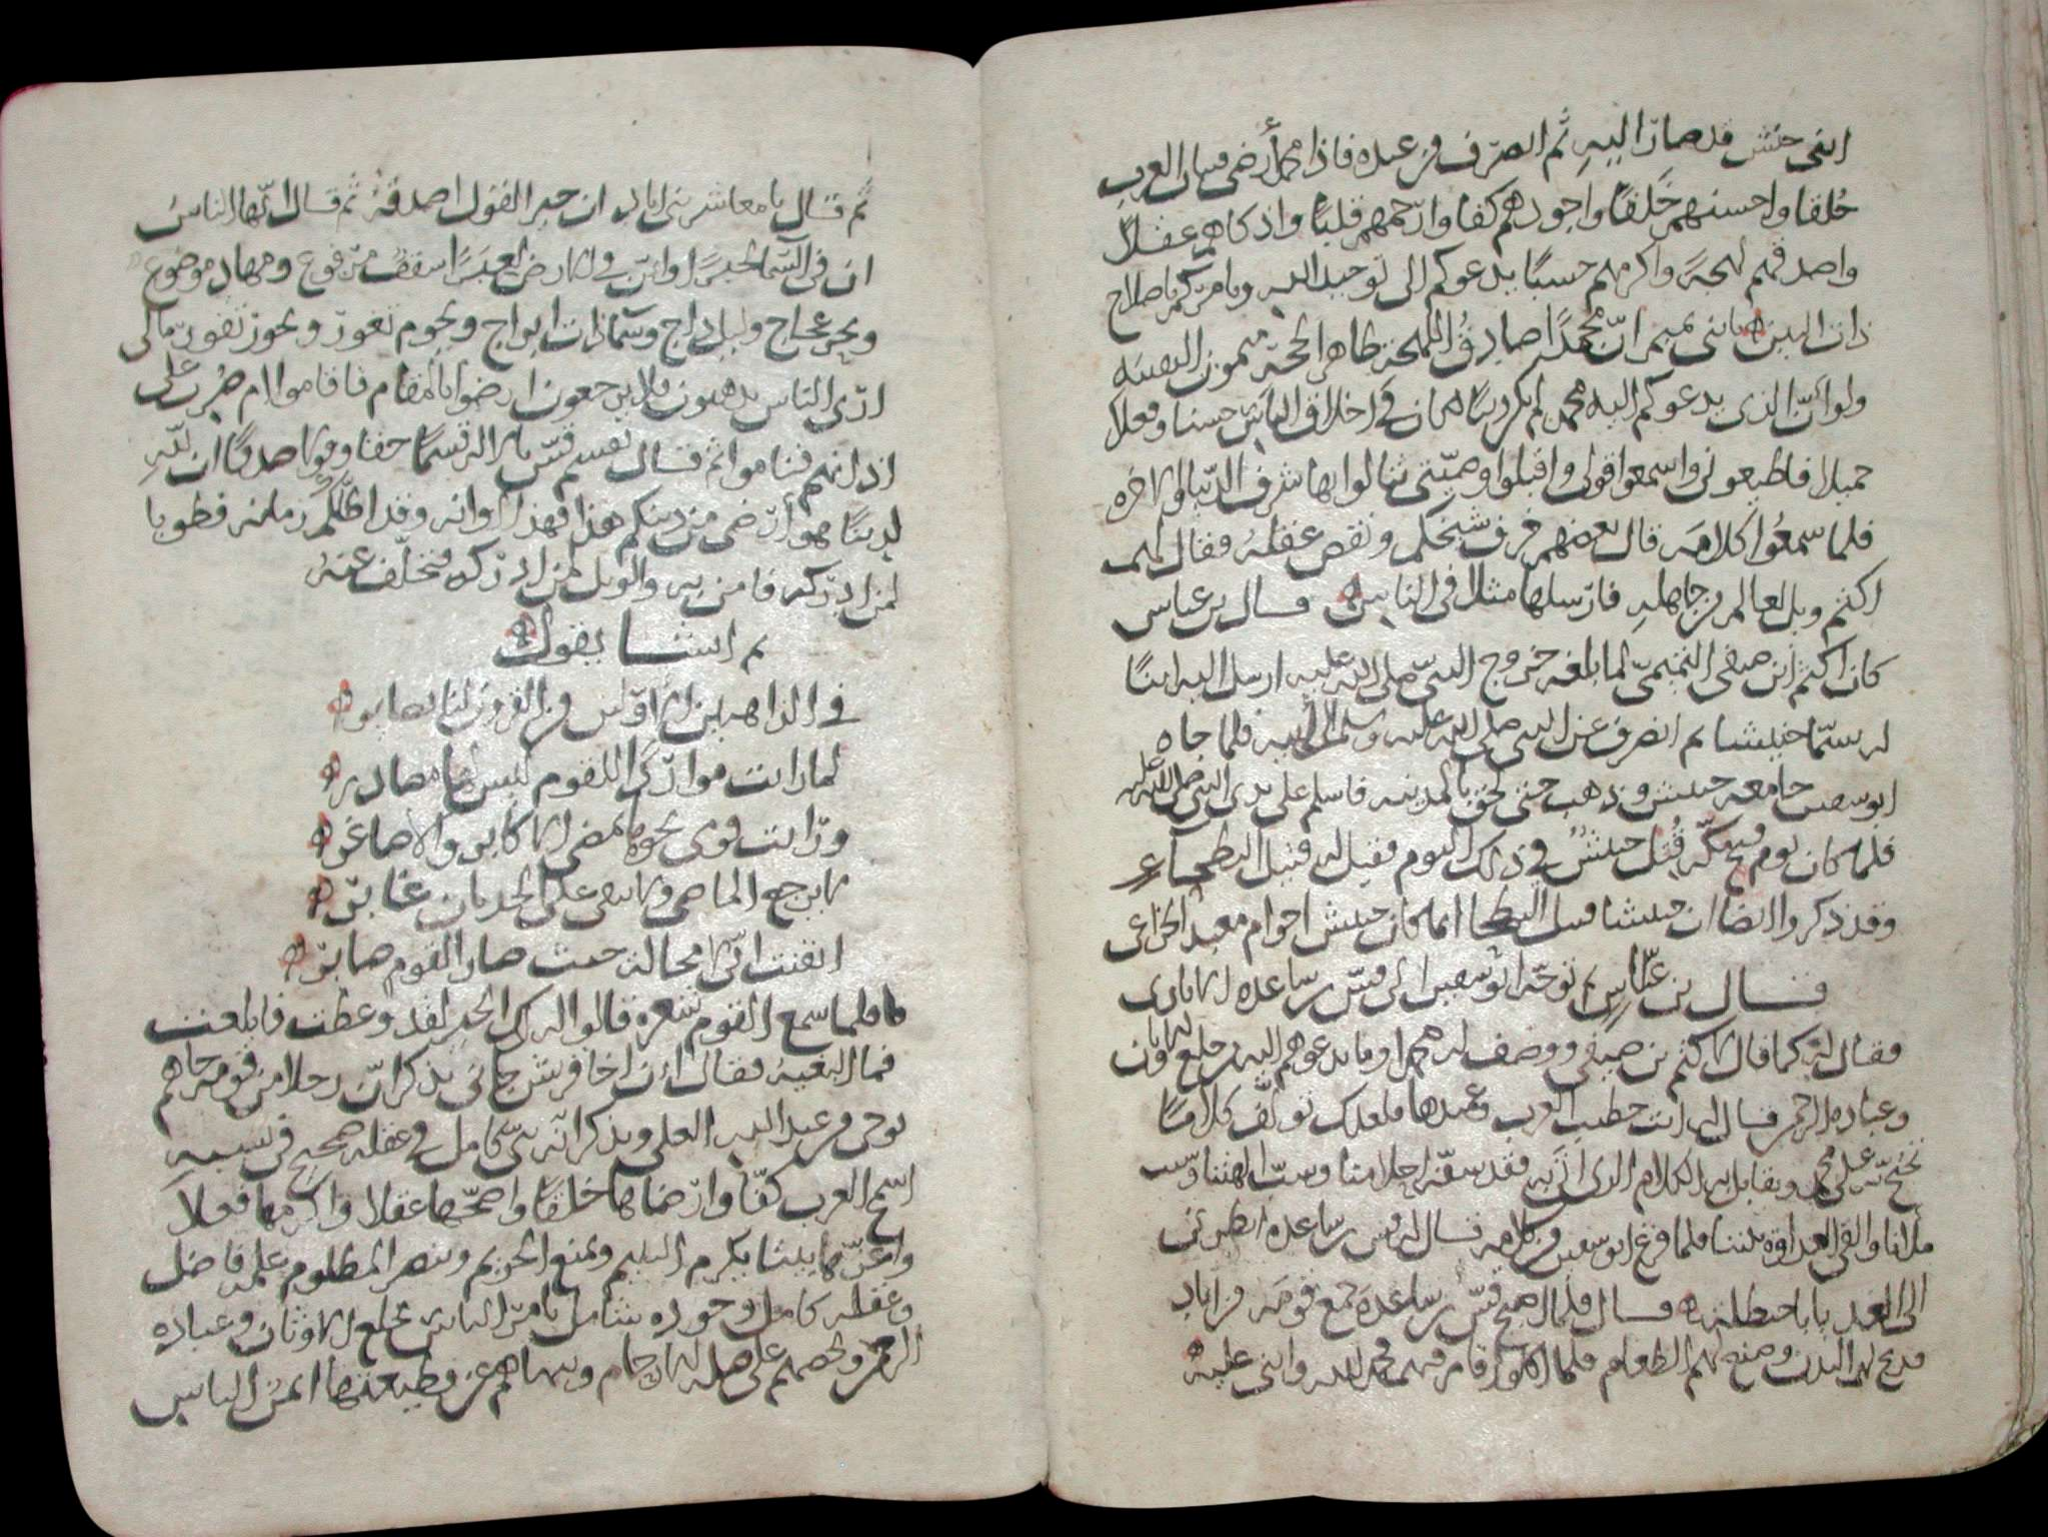 ابني حنش قد صار اليه ثم انصرف من عنده فاذا محمد أرضى فتيان العرب
خُلقا واحسنهم خَلقًا واجودهم كفا وارحمهم قلبًا واذكاهم عقلاً
واصدقهم لهجةً واكرمهم حسبًا يدعوكم الى توحيد الله ويامركم باصلاح
ذات البين يا بني تميم انّ محمدًا صادقُ اللهجة ظاهر الحجة ميمون النقيبه
ولو انّ الذى يدعوكم اليه محمد لم يكن دينًا لكان في اخلاق الناس حسنا وفعلا
جميلا فاطيعونى واسمعوا قولى واقبلوا وصيّتى تنالوا بها شرف الدنيا والاخره
فلما سمعُوا كلامه قال بعضهم خرف شيخكم ونقص عقلهُ فقال لهم
اكثم ويل للعالم من جاهلهِ فارسلها مثلا فى الناس قال بن عباس
كان اكثم ابن صيفى التميمىّ لما بلغه خروج النبى صلى الله عليه ارسل اليه ابنًا
له يسمّا حبيشا ثم انصرف عن النبى صلى الله عليه وسلم الى ابيه فلما جاه
ابو سفين جا معه حبيش وذهب حتى لحق بالمدينه فاسلم على يدى النبى صلى الله عليه
فلما كان يوم فتح مكّه قُتل حبيشٌ في ذلك اليوم فقيل له قتيل البطحاء
وقد ذكروا ايضا ان حبيشا قتيل البطحا انما كان حبيش اخو ام معبد الخزاعى
قال بن عبّاس ثم توجّه ابو سفين الى قسّ بن ساعده الايادى
فقال له كما قال لاكثم بن صيفى ووصف له محمدا وما يدعوهم اليه من خلع الاوثان
وعبادة الرحمن فقال له انت خطيب العرب وعميدها فلعلك تولّف كلامًا
تحتجّ به على محمد ويقابل به الكلام الذى اتى به فقد سفّه احلامنا وسبّ الهتنا وشتت
ملانا والقى العداوة بيننا فلما فرغ ابو سفين من كلامه قال له قس بن ساعده انظرنى
الى الغد يا با حنظله قال فلما اصبح قسّ بن ساعدة جمع قومه من اياد
فذبح لهم البدن وصنع لهم الطعام فلما اكلوا قام فيهم فحمد الله واثنى عليه
ثم قال يا معاشر بنى اياد ان خير القول اصدقُهُ ثم قال ايّها الناسُ
ان فى السّما لخبرًا وانّ فى الارض لعبرًا سقفٌ مرفوع ومهاد موضوع
وبحر عجاج وليل داج وسماذات ابراج ونجوم تغور وبحور تفور مالى
ارى الناس يذهبون فلا يرجعون ارضوا بالمقام فاقاموا ام ضُرب على
اذانهم فناموا ثم قال يقسم قسّ بالله قسمًا حقا وقولا صدقًا ان للّه
لدينًا هو أرضى من دينكم هذا فهذا اوانه وقد اظلّكم زمانه فطوبا
لمن ادركه فامن به والويل لمن ادركه فتخلّف عنهُ
ثم انشا يقول
في الذاهبين الاوّلين من القرون لنا بصاير
لما رايت مواردًا للقوم ليس لها مصادر
ورايت قومى نحوها تمضى الاكابر والاصاغر
لا يرجع الماضى ولا يبقى على الحدثان غابر
ايقنت انّى لا محالة حيث صار القوم صاير
فلما سمع القوم شعره قالوا لك الخير لقد وعظت فابلغت
فما البغية فقال ان اخا قريش جانى يذكر انّ رجلا من قومه جاهم
بوحى من عند الله العلى ويذكر انّه نبىّ كامل في عقله صحيح في نسبه
اسمح العرب كفّا وارضاها خلقًا واصحّها عقلا واكرمها فعلاً
واعزّها بيتا يكرم اليتيم ويمنع الحريم وينصر المظلوم علمه فاضل
وعقله كامل وجوده شامل يامر الناس بخلع الاوثان وعباده
الرحمن ويحضهم على صلة الارحام وينهاهم عن قطيعتها ايمن الناس